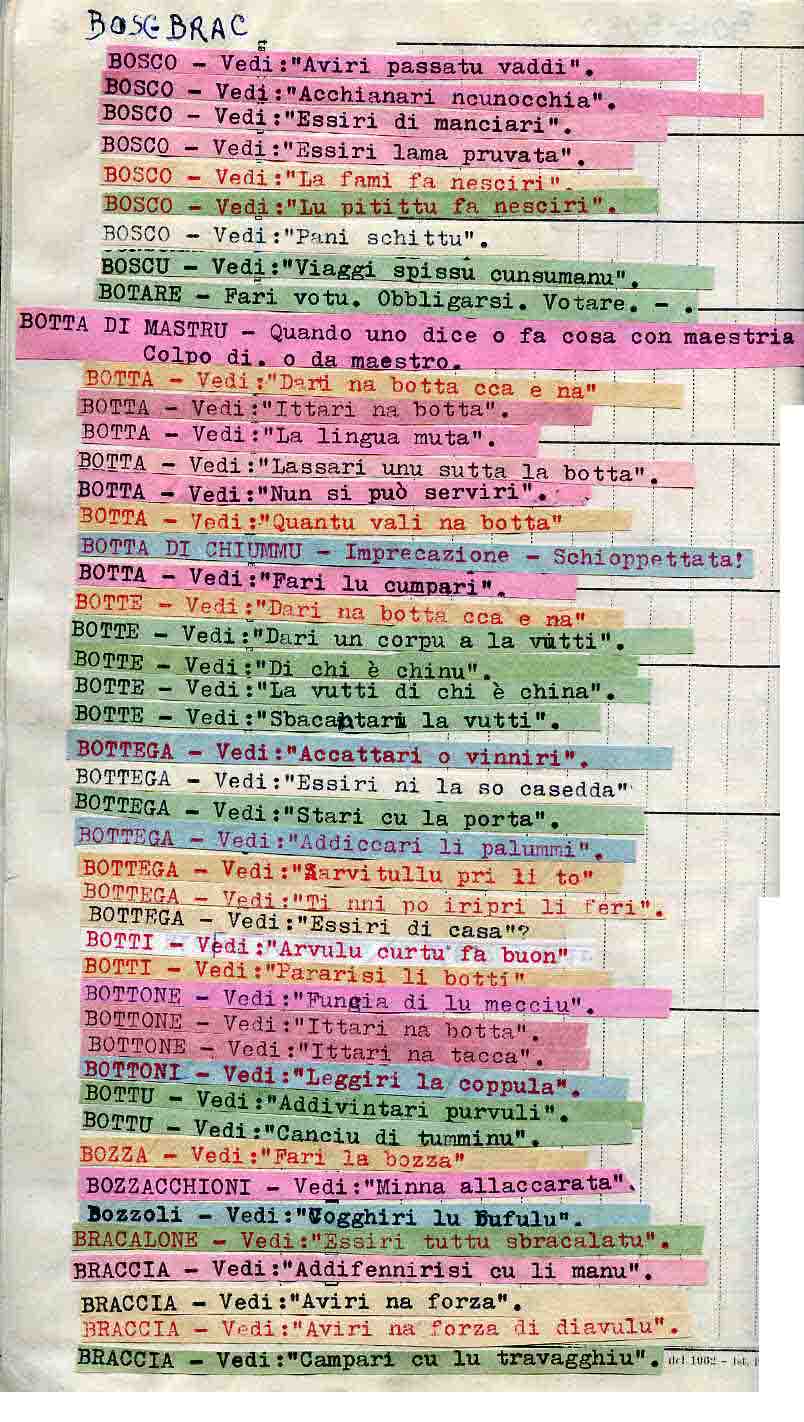 BOSC BRAC
BOSCO - Vedi:"Aviri passatu vaddi".
BOSCO - Vedi:"Acchianari ncunocchia".
BOSCO - Vedi:"Essiri di manciari".
BOSCO - Vedi:"Essiri lama pruvata".
BOSCO - Vedi:"La fami fa nesciri".
BOSCO - Vedi:"Lu pitittu fa nesciri".
BOSCO - Vedi:"Pani schittu".
BOSCU - Vedi:"Viaggi spissu cunsumanu".
BOTARE - Fari votu. Obbligarsi. Votare. - .
BOTTA DI MASTRU - Quando uno dice o fa cosa con maestria
Colpo di. o da maestro.
BOTTA - Vedi:"Dari na botta cca e na"
BOTTA - Vedi:"Ittari na botta".
BOTTA - Vedi:"La lingua muta".
BOTTA - Vedi:"Lassari unu sutta la botta".
BOTTA - Vedi:"Nun si può serviri".
BOTTA - Vedi:"Quantu vali na botta"
BOTTA DI CHIUMMU - Imprecazione - Schioppettata!
BOTTA - Vedi:"Fari lu cumpari".
BOTTE - Vedi:"Dari na botta cca e na"
BOTTE - Vedi:"Dari un corpu a la vutti".
BOTTE - Vedi:"Di chi è chinu".
BOTTE - Vedi:"La vutti di chi è china".
BOTTE - Vedi:"Sbacantari la vutti".
BOTTEGA - Vedi:"Accattari o vinniri".
BOTTEGA - Vedi:"Essiri ni la so casedda"
BOTTEGA - Vedi:"Stari cu la porta".
BOTTEGA - Vedi:"Addiccari li palummi".
BOTTEGA - Vedi:"Sarvitullu pri li to"
BOTTEGA - Vedi:"Ti nni po iripri li feri".
BOTTEGA - Vedi:"Essiri di casa"?
BOTTI - Vedi:"Arvulu curtu fa buon"
BOTTI - Vedi:"Pararisi li botti"
BOTTONE - Vedi:"Fungia di lu mecciu".
BOTTONE - Vedi:"Ittari na botta".
BOTTONE - Vedi:"Ittari na tacca".
BOTTONI - Vedi:"Leggiri la coppula".
BOTTU - Vedi:"Addivintari purvuli".
BOTTU - Vedi:"Canciu di tumminu".
BOZZA - Vedi:"Fari la bozza"
BOZZACCHIONI - Vedi:"Minna allaccarata".
Bozzoli - Vedi:"Cogghiri lu Bufulu".
BRACALONE - Vedi:"Essiri tuttu sbracalatu".
BRACCIA - Vedi:"Addifennirisi cu li manu".
BRACCIA - Vedi:"Aviri na forza".
BRACCIA - Vedi:"Aviri na forza di diavulu".
BRACCIA - Vedi:"Campari cu lu travagghiu".